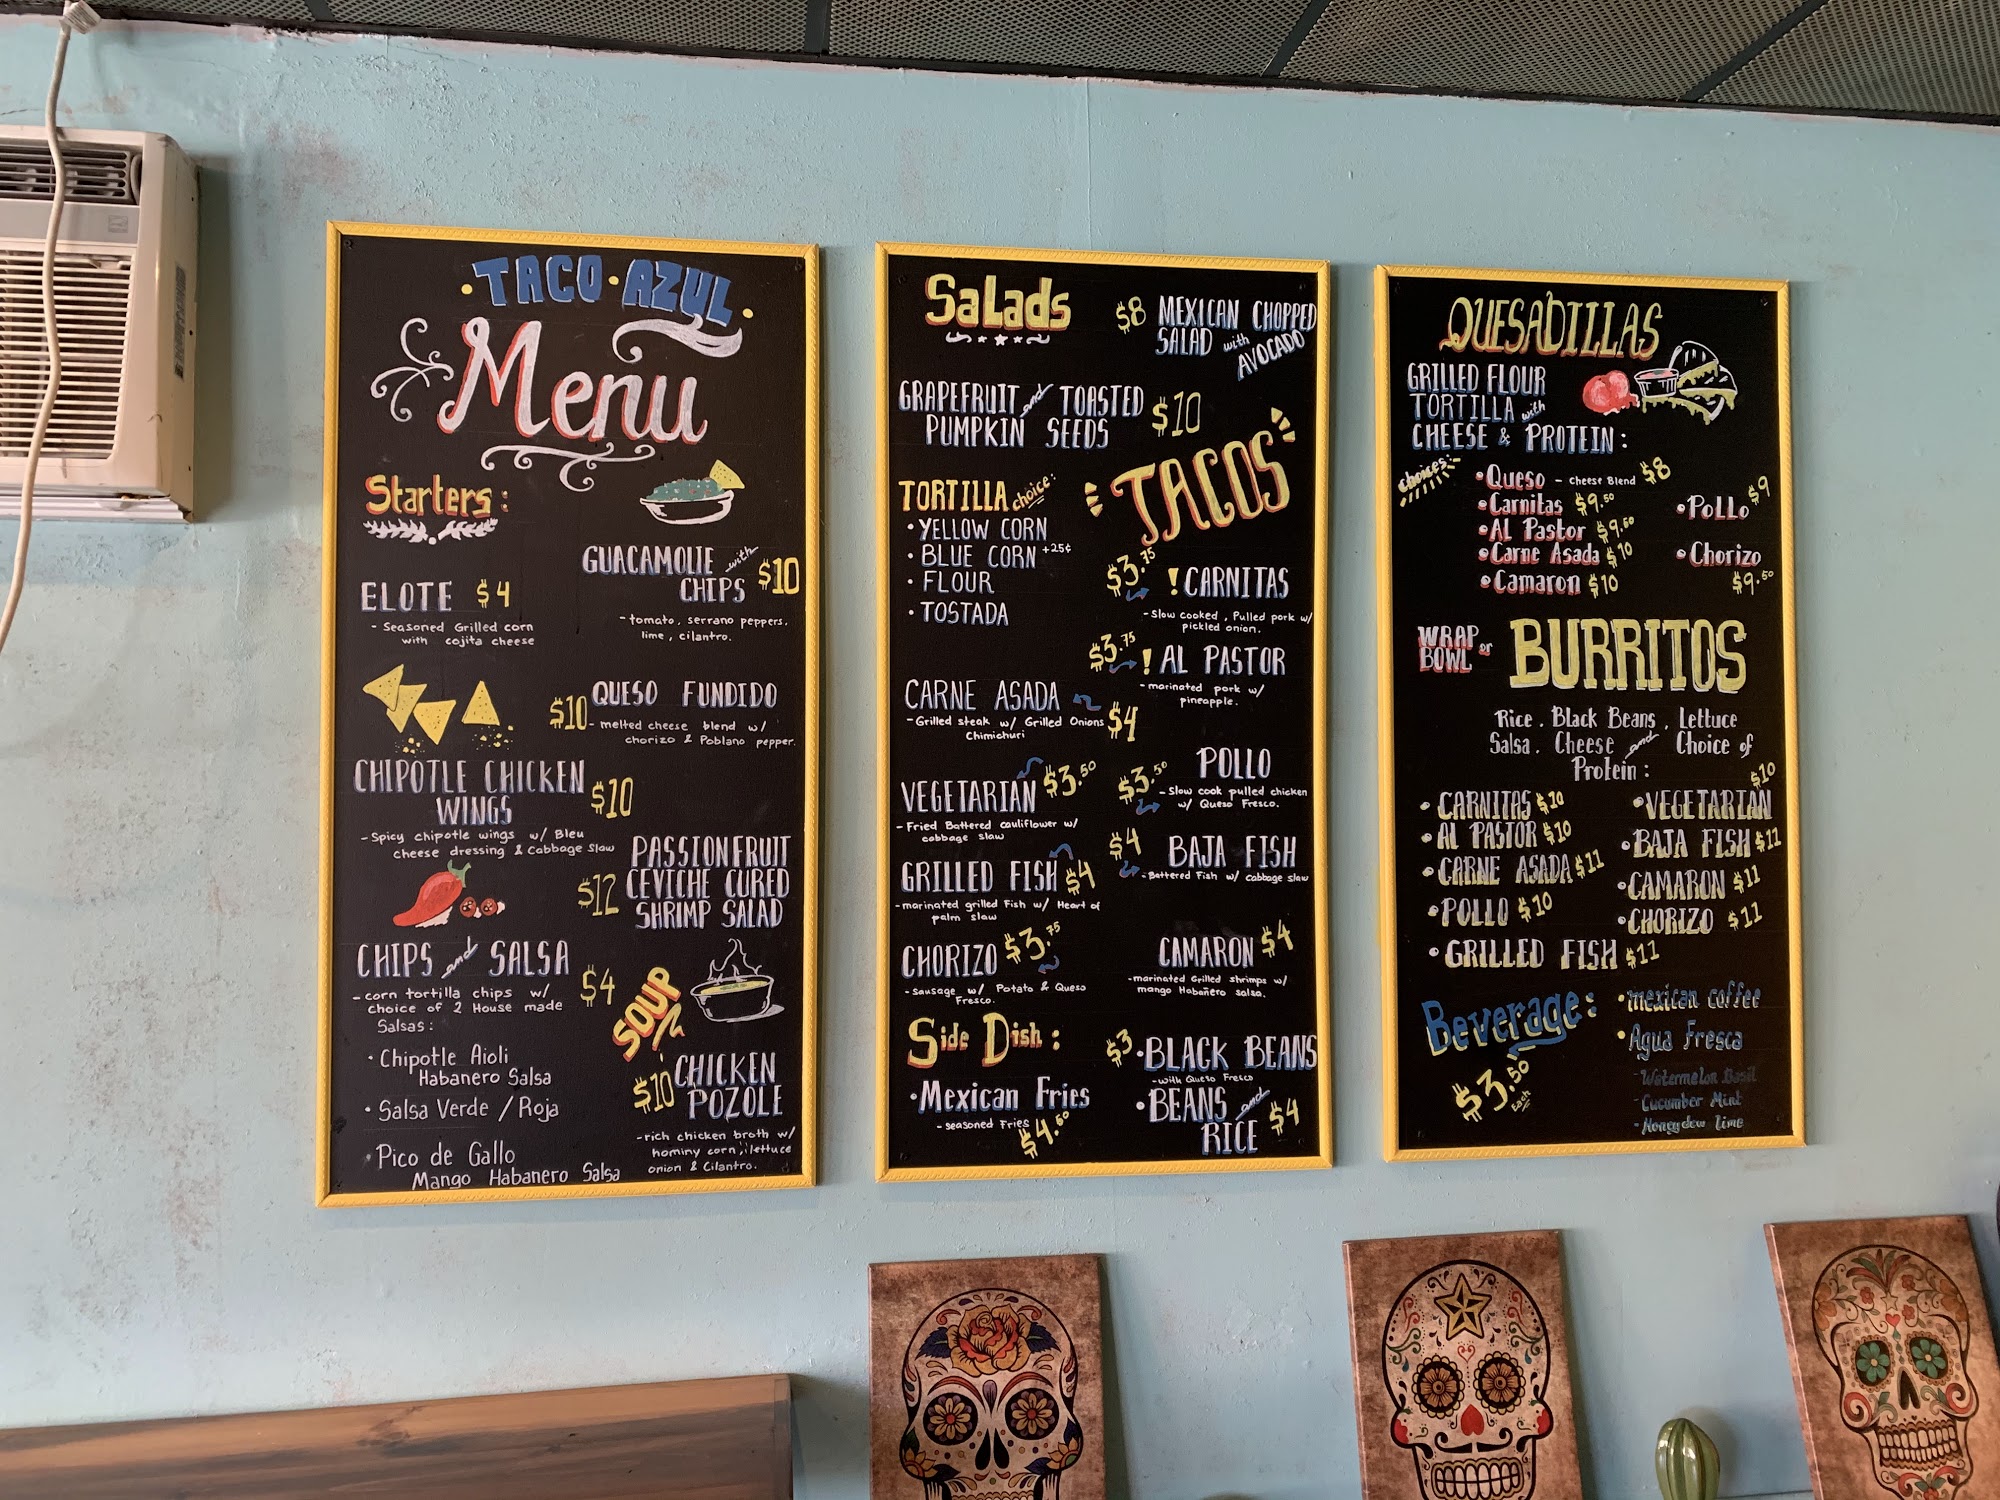 TACO · AZUL
Menu
Starters:
ELOTE $4
- Seasoned Grilled corn
with cojita cheese
GUACAMOLIE with
CHIPS $10
- tomato, serrano peppers,
lime, cilantro.
$10 QUESO FUNDIDO
- melted cheese blend w/
chorizo & Poblano pepper.
CHIPOTLE CHICKEN
WINGS $10
- Spicy chipotle wings w/ Bleu
cheese dressing & Cabbage Slaw
PASSIONFRUIT
$12 CEVICHE CURED
SHRIMP SALAD
CHIPS and SALSA $4
- corn tortilla chips w/
choice of 2 House made
Salsas:
· Chipotle Aioli
Habanero Salsa
· Salsa Verde / Roja
· Pico de Gallo
Mango Habanero Salsa
SOUP
$10 CHICKEN
POZOLE
- rich chicken broth w/
hominy corn, lettuce
onion & Cilantro.
Salads
$8 MEXICAN CHOPPED
SALAD with
AVOCADO
GRAPEFRUIT and TOASTED
PUMPKIN SEEDS $10
TACOS
TORTILLA choice:
· YELLOW CORN
· BLUE CORN +25¢
· FLOUR
· TOSTADA
$3.75 ! CARNITAS
- Slow cooked, Pulled pork w/
pickled onion.
$3.75 ! AL PASTOR
- marinated pork w/
pineapple.
CARNE ASADA $4
- Grilled steak w/ Grilled Onions
Chimichuri
$3.50 POLLO
- Slow cook pulled chicken
w/ Queso Fresco.
VEGETARIAN $3.50
- Fried Battered cauliflower w/
cabbage slaw
$4 BAJA FISH
- Battered Fish w/ cabbage slaw
GRILLED FISH $4
- marinated grilled Fish w/ Heart of
palm slaw
CHORIZO $3.75
- sausage w/ Potato & Queso
Fresco.
CAMARON $4
- marinated Grilled shrimps w/
mango Habañero salsa.
Side Dish:
· Mexican Fries
- seasoned Fries
$4.50
$3 · BLACK BEANS
- with Queso Fresco
· BEANS and
RICE $4
QUESADILLAS
GRILLED FLOUR
TORTILLA with
CHEESE & PROTEIN:
choices:
· Queso - Cheese Blend $8
· Carnitas $9.50
· Al Pastor $9.50
· Carne Asada $10
· Camaron $10
· Pollo $9
· Chorizo
$9.50
WRAP or
BOWL
BURRITOS
Rice, Black Beans, Lettuce
Salsa, Cheese and Choice of
Protein:
· CARNITAS $10
· AL PASTOR $10
· CARNE ASADA $11
· POLLO $10
· GRILLED FISH $11
$10
· VEGETARIAN
· BAJA FISH $11
· CAMARON $11
· CHORIZO $11
Beverage:
$3.50
Each
· mexican coffee
· Agua Fresca
- Watermelon Basil
- Cucumber Mint
- Honeydew Lime